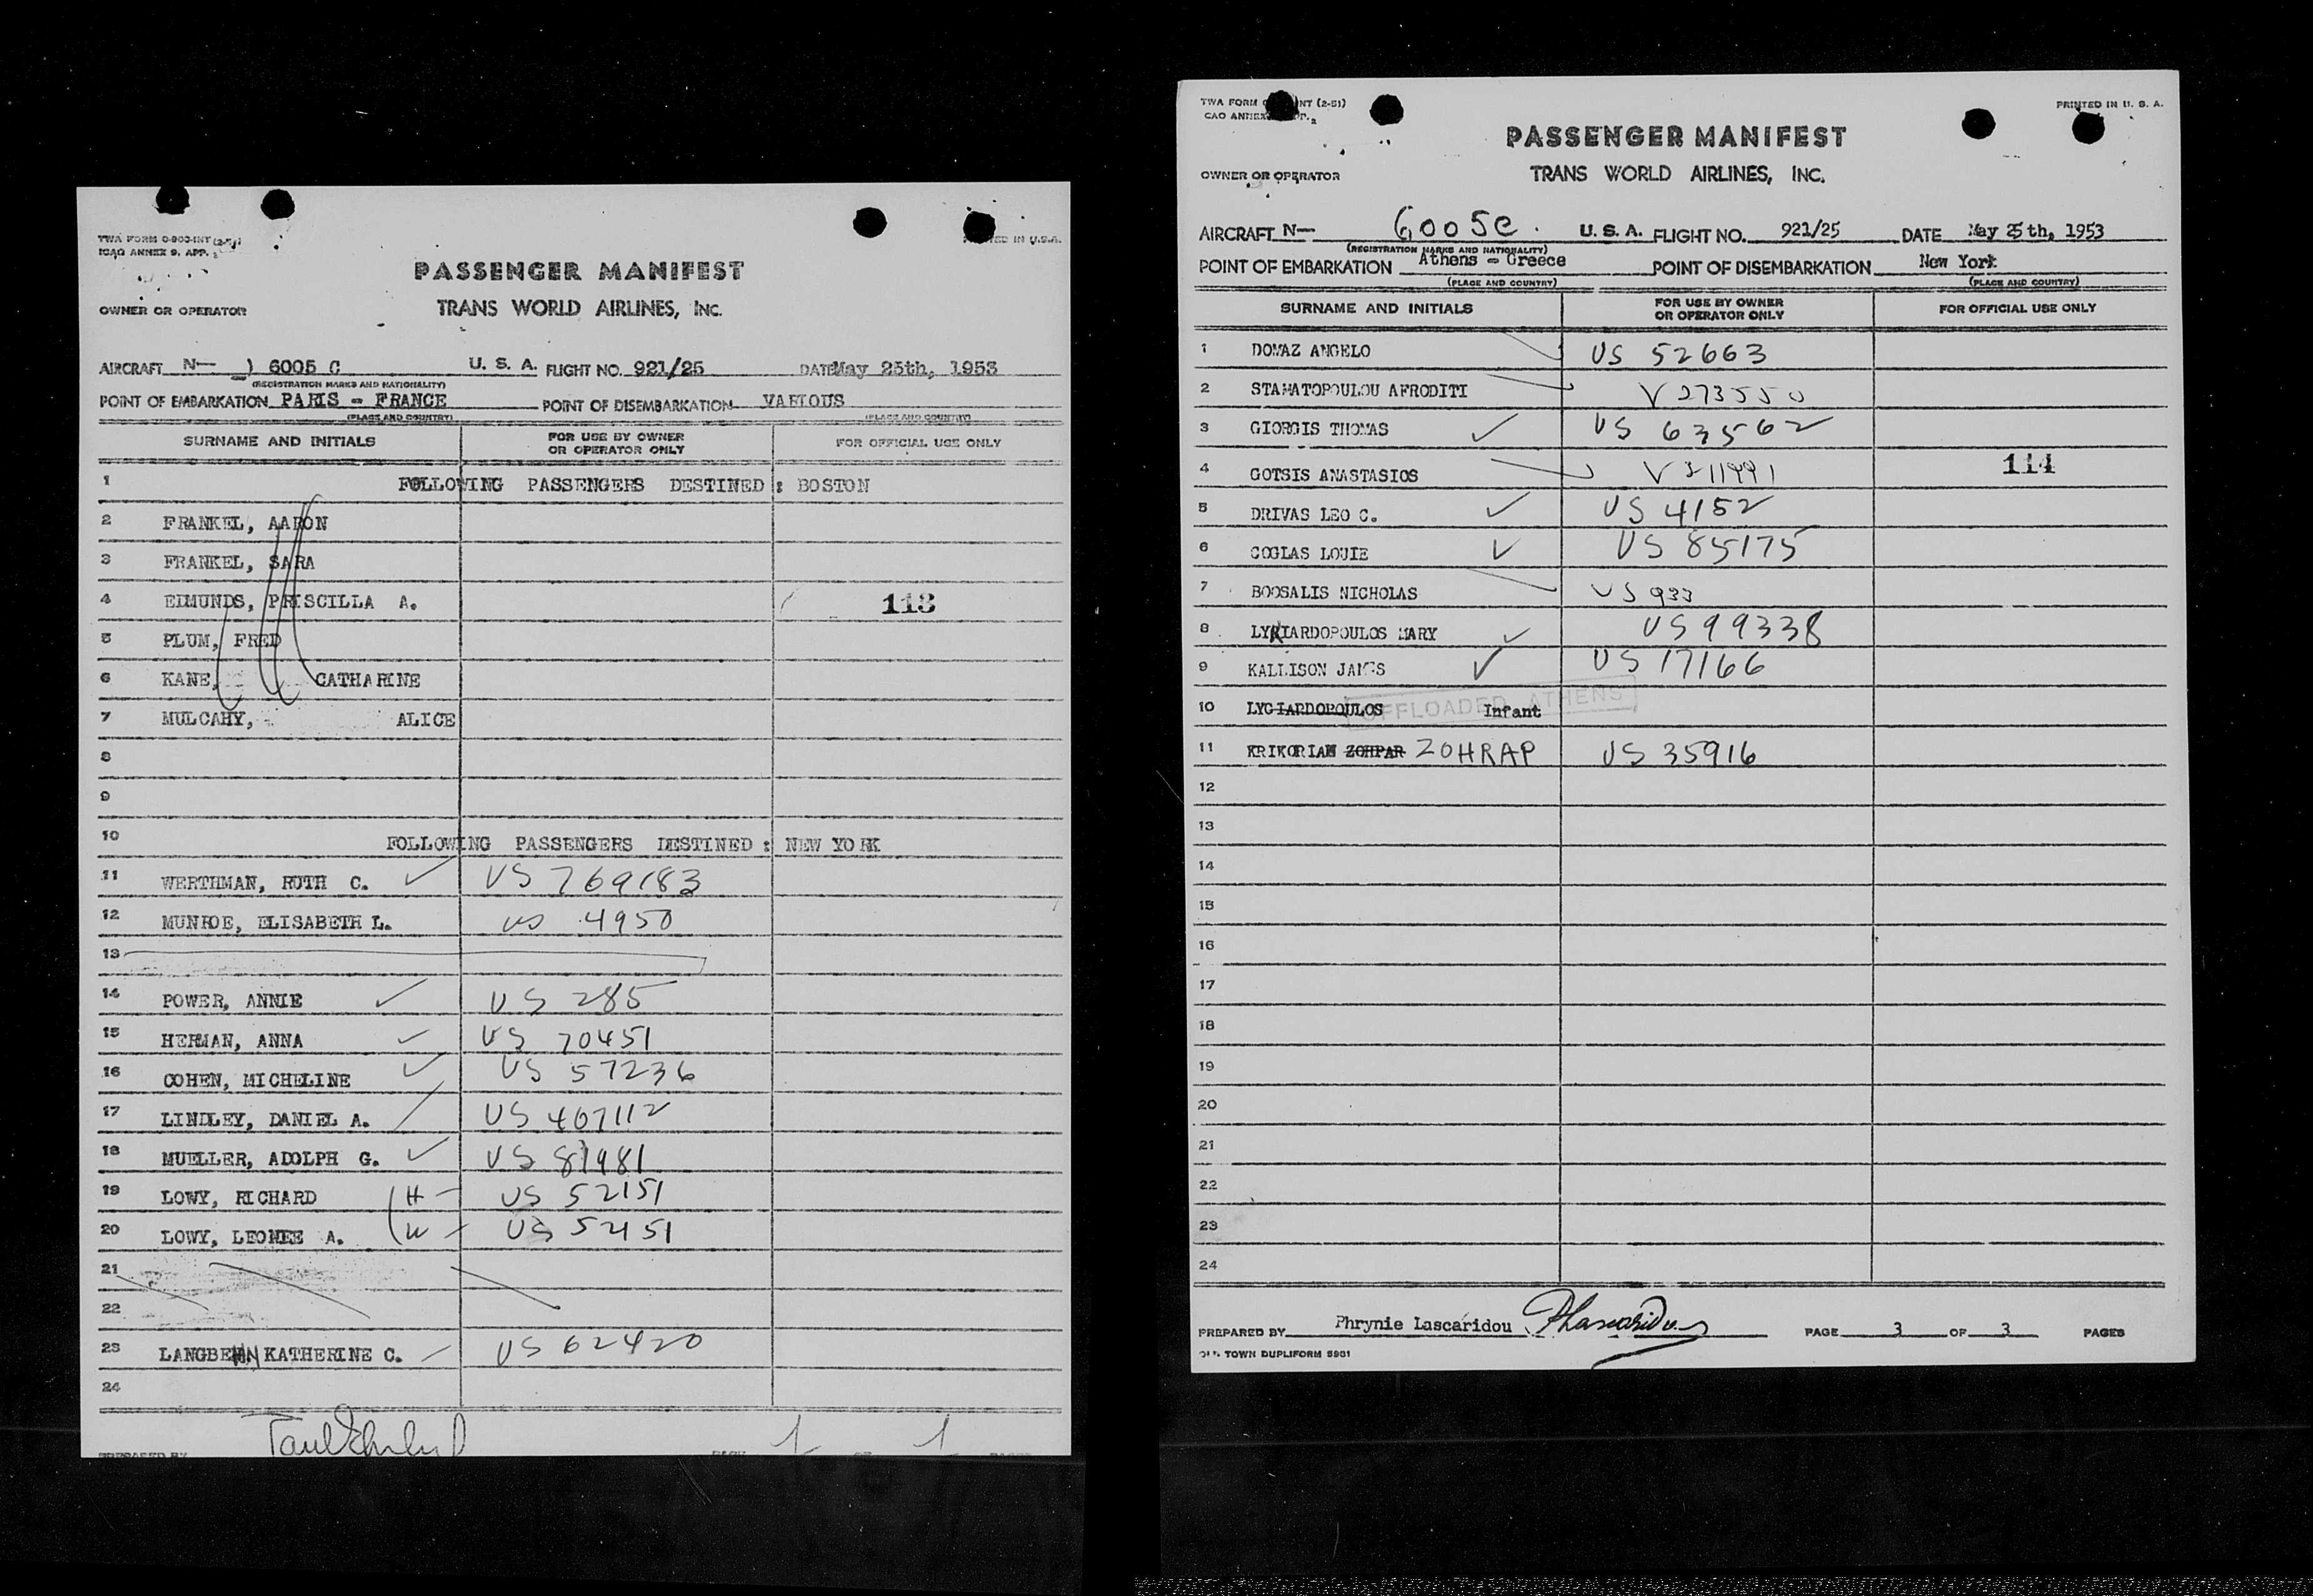 TWA FORM 0-900-INT (2-51)
ICAO ANNEX 9. APP. 2
PRINTED IN U.S.A.
PASSENGER MANIFEST
OWNER OR OPERATOR
TRANS WORLD AIRLINES, INC.
AIRCRAFT N— 6005 C U. S. A. FLIGHT NO. 921/25 DATE May 25th, 1953
(REGISTRATION MARKS AND NATIONALITY)
POINT OF EMBARKATION PARIS - FRANCE POINT OF DISEMBARKATION VARIOUS
(PLACE AND COUNTRY) (PLACE AND COUNTRY)
SURNAME AND INITIALS FOR USE BY OWNER OR OPERATOR ONLY FOR OFFICIAL USE ONLY
1 FOLLOWING PASSENGERS DESTINED : BOSTON
2 FRANKEL, AARON
3 FRANKEL, SARA
4 EDMUNDS, PRISCILLA A. 113
5 PLUM, FRED
6 KANE, CATHARINE
7 MULCAHY, ALICE
8
9
10 FOLLOWING PASSENGERS DESTINED : NEW YORK
11 WERTHMAN, RUTH C. ✓ US 769183
12 MUNROE, ELISABETH L. US 4950
13
14 POWER, ANNIE ✓ US 285
15 HERMAN, ANNA ✓ US 70451
16 COHEN, MICHELINE ✓ US 57236
17 LINDLEY, DANIEL A. US 407112
18 MUELLER, ADOLPH G. ✓ US 81981
19 LOWY, RICHARD (H - US 52151
20 LOWY, LEONEE A. (W - US 52151
21
22
23 LANGBEHN KATHERINE C. US 62420
24
PREPARED BY PAGE 1 OF 1 PAGES
TWA FORM INT (2-51)
CAO ANNEX P. 2
PRINTED IN U. S. A.
PASSENGER MANIFEST
OWNER OR OPERATOR
TRANS WORLD AIRLINES, INC.
AIRCRAFT N— 6005C. U. S. A. FLIGHT NO. 921/25 DATE May 25th, 1953
(REGISTRATION MARKS AND NATIONALITY)
POINT OF EMBARKATION Athens - Greece POINT OF DISEMBARKATION New York
(PLACE AND COUNTRY) (PLACE AND COUNTRY)
SURNAME AND INITIALS FOR USE BY OWNER OR OPERATOR ONLY FOR OFFICIAL USE ONLY
1 DOMAZ ANGELO US 52663
2 STAMATOPOULOU AFRODITI V 273550
3 GIORGIS THOMAS ✓ US 63562
4 GOTSIS ANASTASIOS 114
5 DRIVAS LEO C. ✓ US 4152
6 COGLAS LOUIE ✓ US 85175
7 BOOSALIS NICHOLAS US 933
8 LYKIARDOPOULOS MARY ✓ US 99338
9 KALLISON JAMES ✓ US 17166
OFFLOADED ATHENS
10 LYGIARDOPOULOS Infant
11 KRIKORIAN ZOHPAR ZOHRAP US 35916
12
13
14
15
16
17
18
19
20
21
22
23
24
PREPARED BY Phrynie Lascaridou PLascaridou PAGE 3 OF 3 PAGES
OLD TOWN DUPLIFORM 5981